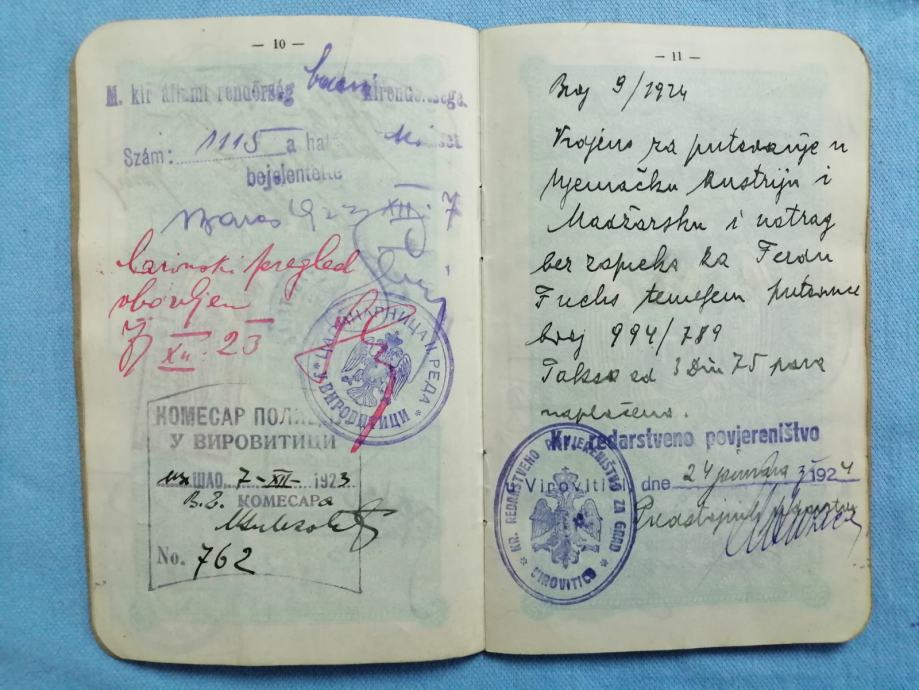 — 10 —
M. kir. állami rendőrség kirendeltsége.
Szám: 1115 a
bejelentette
1923 XII. 7
Carinski pregled
obavljen
7/XII. 23
ЦАРИНАРНИЦА II РЕДА
У ВИРОВИТИЦИ
КОМЕСАР ПОЛИЦ
У ВИРОВИТИЦИ
ШАО 7-XII- 1923
В.З. КОМЕСАРА
No. 762
— 11 —
Broj 9/1924
Vrijedno za putovanje u
Njemačku Austriju i
Madžarsku i natrag
bez zapreke za Ferdu
Fuchs temeljem putovnice
broj 994/789
Taksa od 3 Din 75 para
naplaćena.
Kr. redarstveno povjereništvo
Virovitici dne 24 1924
KR. REDARSTVENO POVJERENIŠTVO ZA GRAD
VIROVITICU
Predstojnik